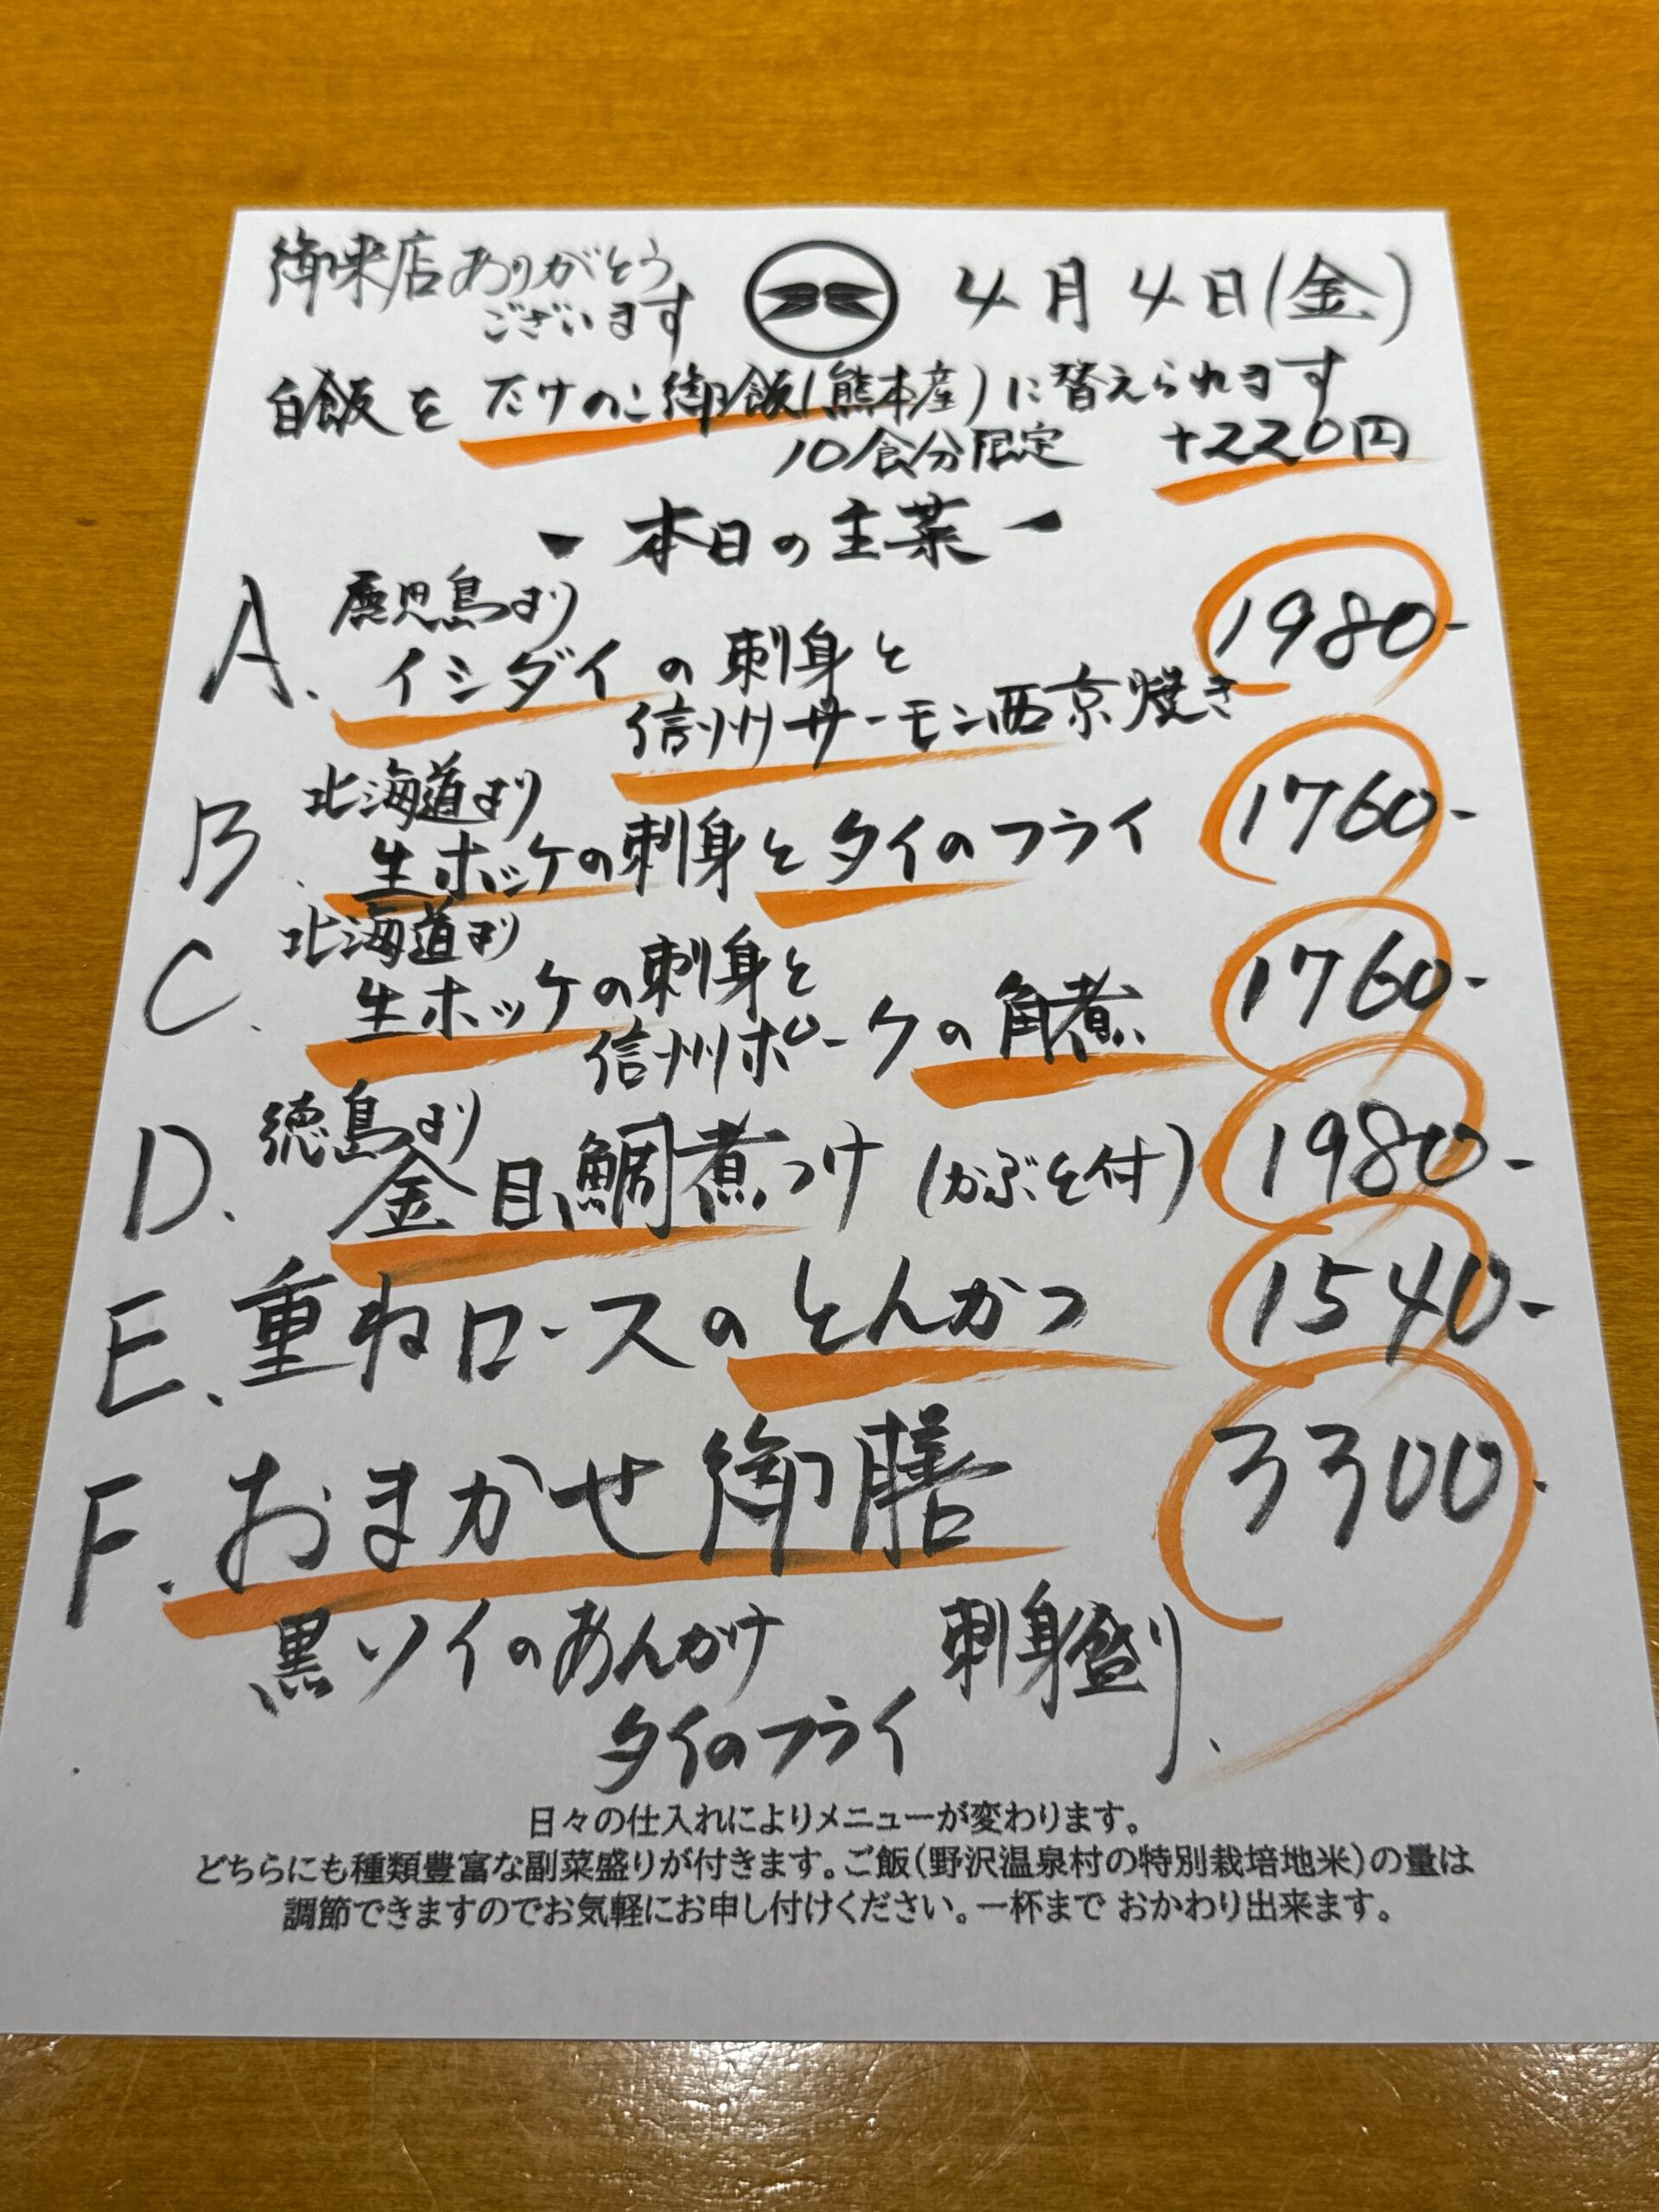 御来店ありがとう
ございます
4月4日(金)
白飯をたけのこ御飯(熊本産)に替えられます
10食分限定 +220円
- 本日の主菜 -
A. 鹿児島より
イシダイの刺身と
信州サーモン西京焼き
1980-
B. 北海道より
生ホッケの刺身とタイのフライ
1760-
C. 北海道より
生ホッケの刺身と
信州ポークの角煮
1760-
D. 徳島より
金目鯛煮つけ (かぶと付)
1980-
E. 重ねロースのとんかつ
1540-
F. おまかせ御膳
3300-
黒ソイのあんかけ 刺身盛り
タイのフライ
日々の仕入れによりメニューが変わります。
どちらにも種類豊富な副菜盛りが付きます。ご飯(野沢温泉村の特別栽培地米)の量は
調節できますのでお気軽にお申し付けください。一杯まで おかわり出来ます。